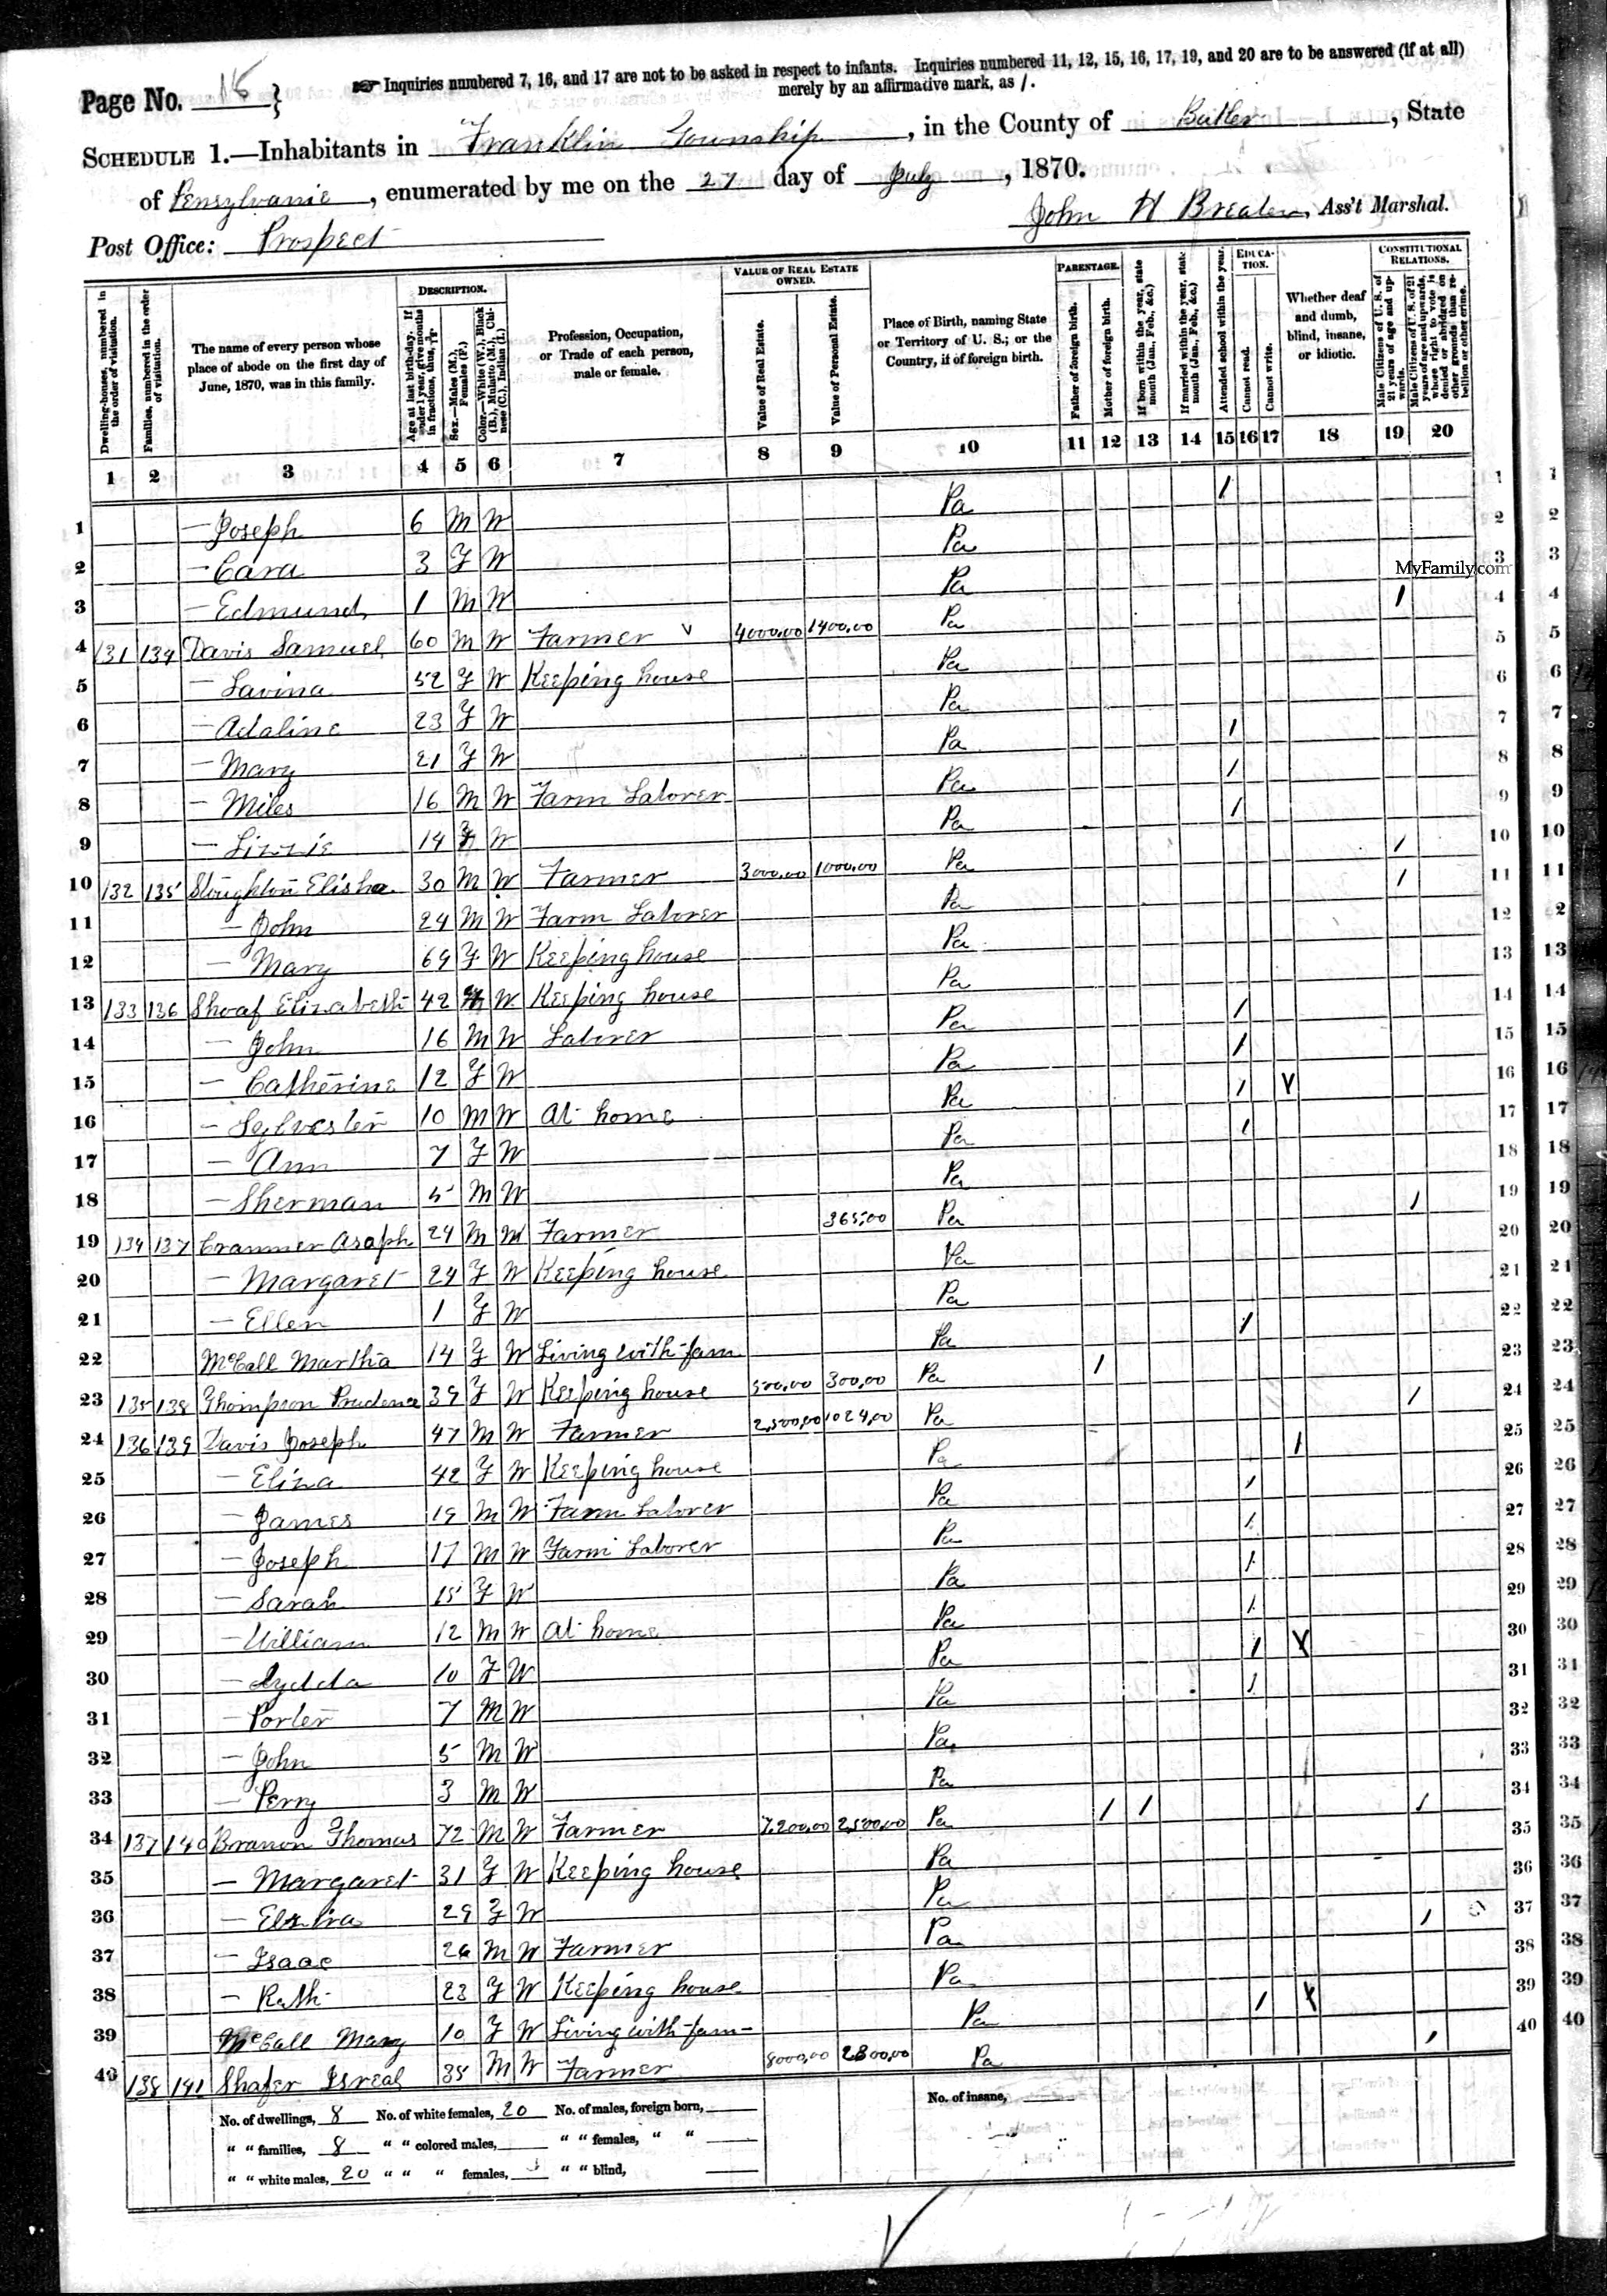 Page No. 18 }
☞ Inquiries numbered 7, 16, and 17 are not to be asked in respect to infants. Inquiries numbered 11, 12, 15, 16, 17, 19, and 20 are to be answered (if at all)
merely by an affirmative mark, as /.
SCHEDULE 1.—Inhabitants in Franklin Township, in the County of Butler, State
of Pensylvania, enumerated by me on the 27 day of July, 1870.
Post Office: Prospect
John H, Ass't Marshal.
Dwelling-houses, numbered in the order of visitation.
Families, numbered in the order of visitation.
The name of every person whose place of abode on the first day of June, 1870, was in this family.
DESCRIPTION.
Age at last birth-day. If under 1 year, give months in fractions, thus, 3/12.
Sex.—Males (M.), Females (F.)
Color.—White (W.), Black (B.), Mulatto (M.), Chinese (C.), Indian (I.)
Profession, Occupation, or Trade of each person, male or female.
VALUE OF REAL ESTATE OWNED.
Value of Real Estate.
Value of Personal Estate.
Place of Birth, naming State or Territory of U. S.; or the Country, if of foreign birth.
PARENTAGE.
Father of foreign birth.
Mother of foreign birth.
If born within the year, state month (Jan., Feb., &c.)
If married within the year, state month (Jan., Feb., &c.)
Attended school within the year.
EDUCATION.
Cannot read.
Cannot write.
Whether deaf and dumb, blind, insane, or idiotic.
CONSTITUTIONAL RELATIONS.
Male Citizens of U. S. of 21 years of age and upwards.
Male Citizens of U. S. of 21 years of age and upwards, whose right to vote is denied or abridged on other grounds than rebellion or other crime.
1 2 3 4 5 6 7 8 9 10 11 12 13 14 15 16 17 18 19 20
1 — Joseph 6 M W Pa / 1
2 — Cara 3 F W Pa 2
3 — Edmund 1 M W Pa 3
MyFamily.com
4 131 134 Davis Samuel 60 M W Farmer 4000,00 1400,00 Pa / 4
5 — Lavina 52 F W Keeping house Pa 5
6 — Adaline 23 F W Pa 6
7 — Mary 21 F W Pa / 7
8 — Miles 16 M W Farm Laborer Pa / 8
9 — Lizzie 14 F W Pa / 9
10 132 135 Stoughton Elisha 30 M W Farmer 3000,00 1000,00 Pa / 10
11 — John 24 M W Farm Laborer Pa / 11
12 — Mary 69 F W Keeping house Pa 12
13 133 136 Shoaf Elizabeth 42 W Keeping house Pa 13
14 — John 16 M W Laborer Pa / 14
15 — Catherine 12 F W Pa / 15
16 — Sylvester 10 M W At home Pa / Y 16
17 — Ann 7 F W Pa / 17
18 — Sherman 5 M W Pa 18
19 134 137 Cranmer Asaph 24 M Farmer 365,00 Pa / 19
20 — Margaret 24 F W Keeping house Pa 20
21 — Ellen 1 F W Pa 21
22 McCall Martha 14 F W Living with fam Pa / 22
23 135 138 Thompson Prudence 39 F W Keeping house 500,00 300,00 Pa / 23
24 136 139 Davis Joseph 47 M W Farmer 2,500,00 1024,00 Pa / 24
25 — Eliza 42 F W Keeping house Pa / 25
26 — James 19 M W Farm Laborer Pa / 26
27 — Joseph 17 M W Farm Laborer Pa / 27
28 — Sarah 15 F W Pa / 28
29 — William 12 M W At home Pa / 29
30 — Lydda 10 F W Pa / Y 30
31 — Porter 7 M W Pa / 31
32 — John 5 M W Pa 32
33 — Perry 3 M W Pa 33
34 137 140 Branon Thomas 72 M W Farmer 7,200,00 2,500,00 Pa / / / 34
35 — Margaret 31 F W Keeping house Pa 35
36 — 29 F W Pa 36
37 — Isaac 26 M W Farmer Pa / 37
38 — Ruth 23 F W Keeping house Pa 38
39 McCall Mary 10 F W Living with fam Pa / Y 39
40 138 141 Shafer Isreal 35 M W Farmer 8000,00 2800,00 Pa / 40
No. of dwellings, 8 No. of white females, 20 No. of males, foreign born, No. of insane,
" " families, 8 " " colored males, " " females, " "
" " white males, 20 " " " females, " " blind,